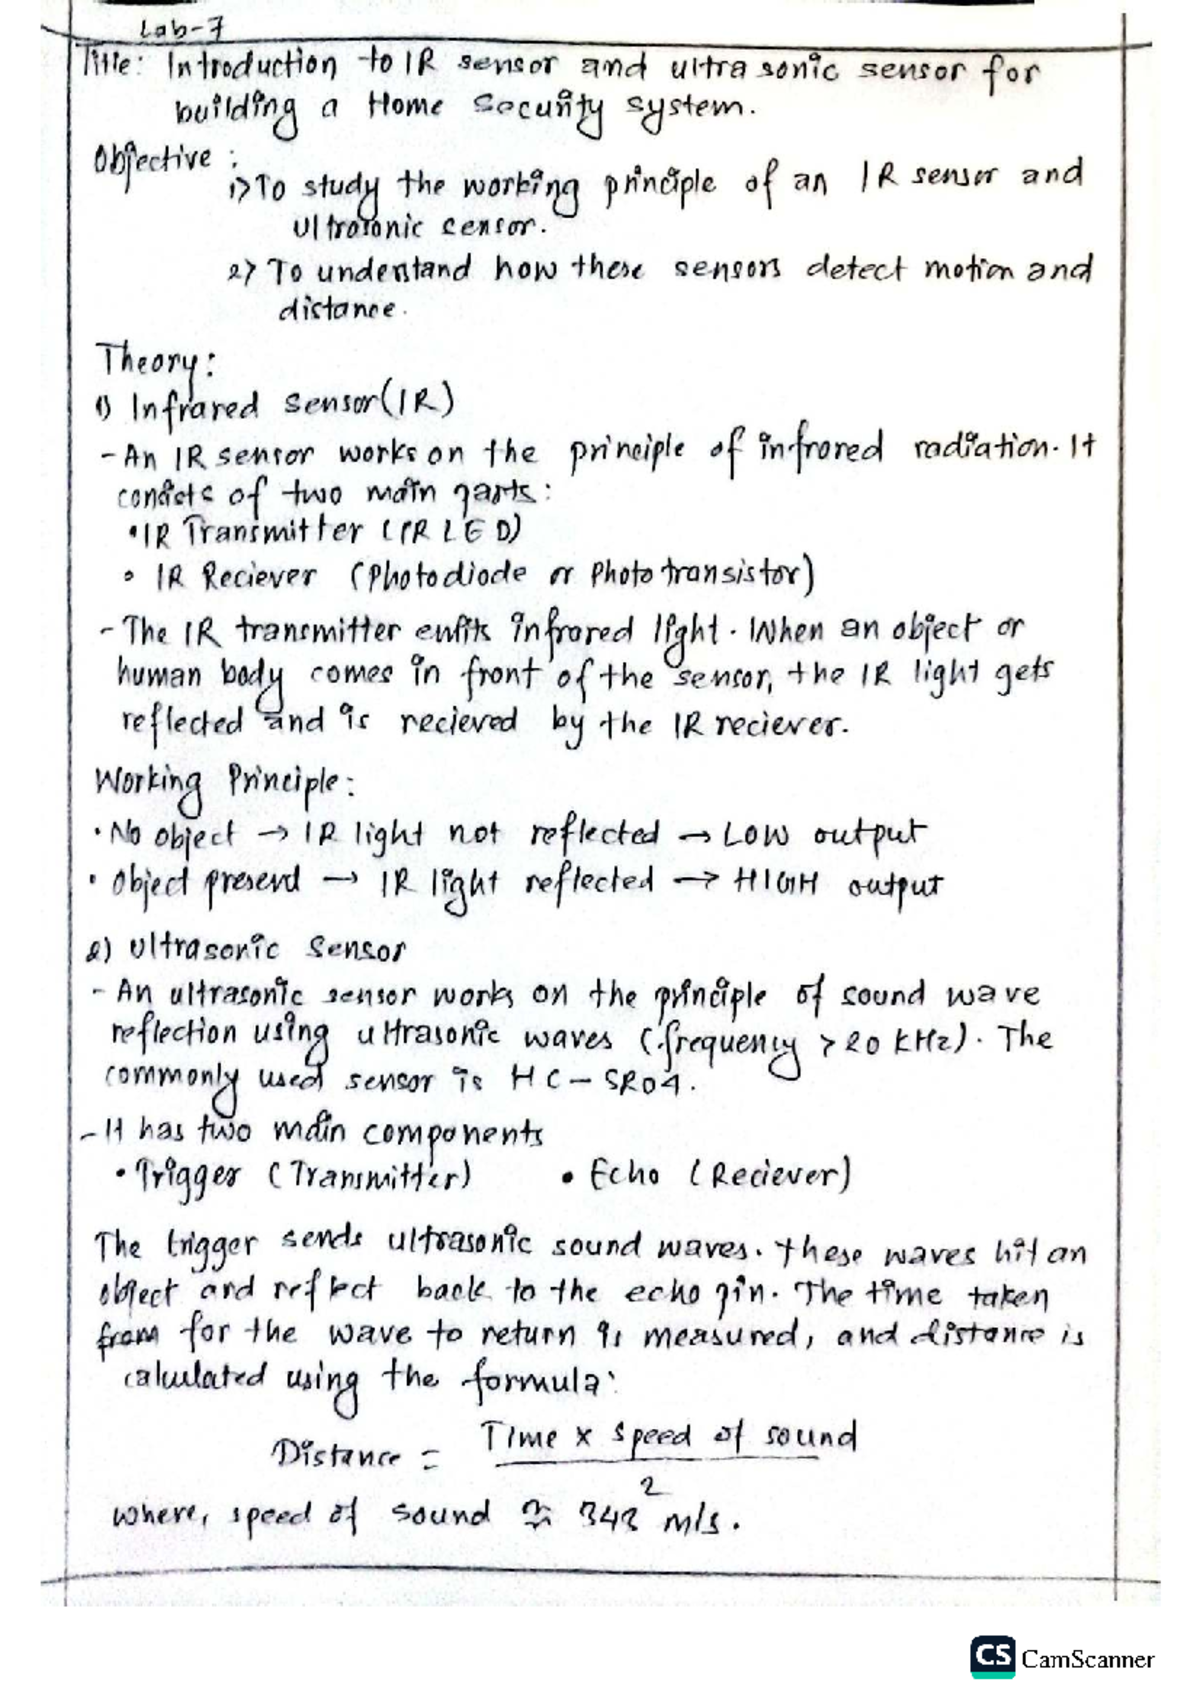 Lab-7
Title: Introduction to IR sensor and ultra sonic sensor for
building a Home Security system.
Objective :
1) To study the working principle of an IR sensor and
Ultrasonic sensor.
2) To understand how these sensors detect motion and
distance.
Theory:
1) Infrared Sensor(IR)
- An IR sensor works on the principle of infrared radiation. It
consists of two main parts:
• IR Transmitter (IR LED)
• IR Reciever (Photodiode or Photo transistor)
- The IR transmitter emits infrared light. When an object or
human body comes in front of the sensor, the IR light gets
reflected and is recieved by the IR reciever.
Working Principle:
• No object → IR light not reflected → LOW output
• Object present → IR light reflected → HIGH output
2) Ultrasonic Sensor
- An ultrasonic sensor works on the principle of sound wave
reflection using ultrasonic waves (frequency > 20 kHz). The
commonly used sensor is HC-SR04.
- It has two main components
• Trigger (Transmitter) • Echo (Reciever)
The trigger sends ultrasonic sound waves. These waves hit an
object and reflect back to the echo pin. The time taken
from for the wave to return is measured, and distance is
calculated using the formula:
Distance = Time x speed of sound
2
where, speed of sound ≅ 343 m/s.
CS CamScanner